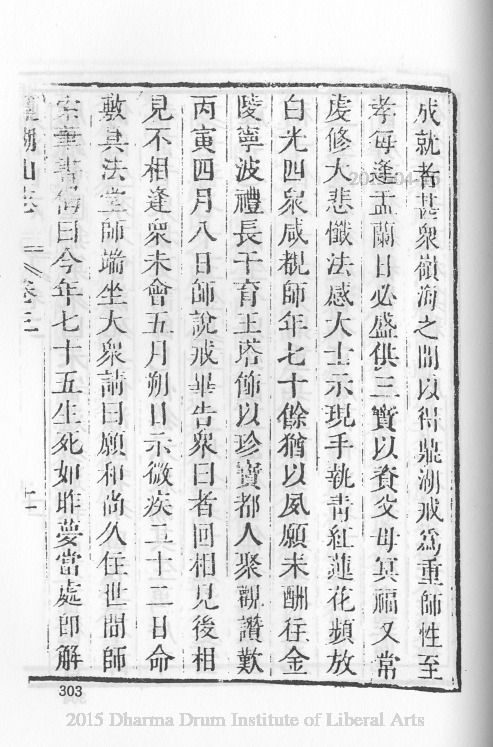 成就者甚衆嶺海之間以得鼎湖戒爲重師性至
孝每逢盂蘭日必盛供三寶以資父母冥福又常
虔修大悲懺法感大士示現手執青紅蓮花頻放
白光四衆咸覩師年七十餘猶以夙願未酬往金
陵寧波禮長干育王塔飾以珍寶都人聚觀讚歎
丙寅四月八日師說戒畢告衆曰者回相見後相
見不相逢衆未會五月朔日示微疾二十二日命
敷具法堂師端坐大衆請曰願和尚久住世間師
索筆書偈曰今年七十五生死如昨夢當處即解
鼎湖山志
卷三
303
2015 Dharma Drum Institute of Liberal Arts